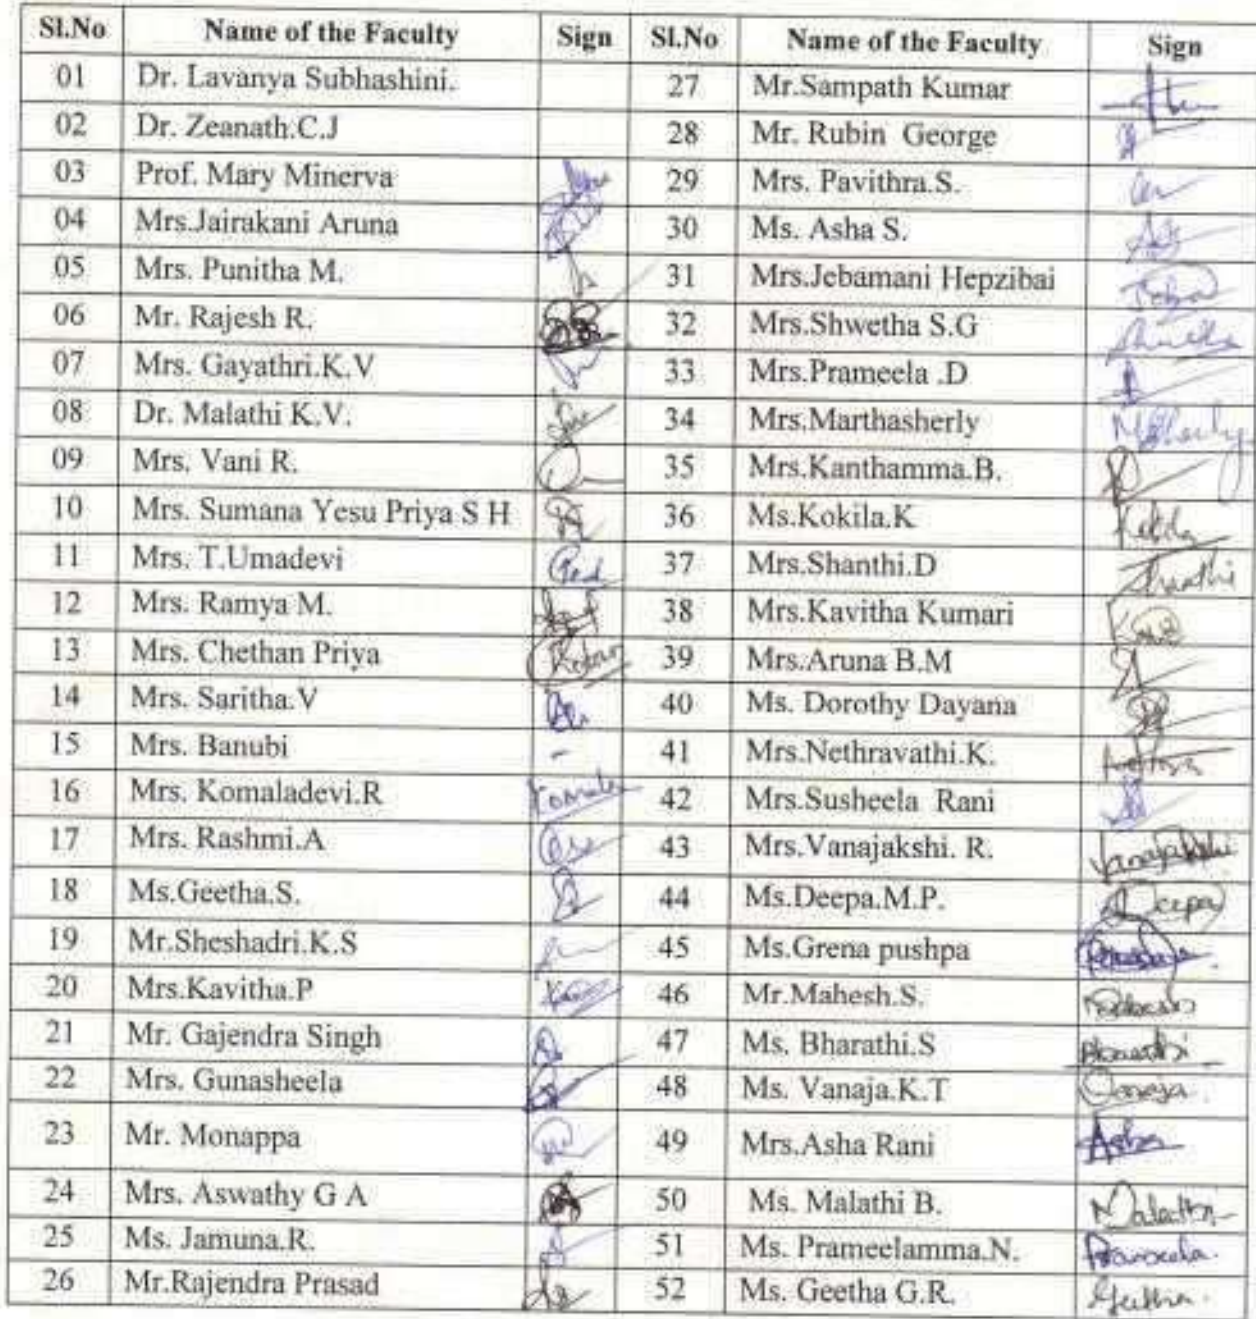 Sl.No Name of the Faculty Sign Sl.No Name of the Faculty Sign
01 Dr. Lavanya Subhashini. 27 Mr.Sampath Kumar
02 Dr. Zeanath.C.J 28 Mr. Rubin George
03 Prof. Mary Minerva 29 Mrs. Pavithra.S.
04 Mrs.Jairakani Aruna 30 Ms. Asha S.
05 Mrs. Punitha M. 31 Mrs.Jebamani Hepzibai
06 Mr. Rajesh R. 32 Mrs.Shwetha S.G
07 Mrs. Gayathri.K.V 33 Mrs.Prameela .D
08 Dr. Malathi K.V. 34 Mrs.Marthasherly
09 Mrs. Vani R. 35 Mrs.Kanthamma.B.
10 Mrs. Sumana Yesu Priya S H 36 Ms.Kokila.K
11 Mrs. T.Umadevi 37 Mrs.Shanthi.D
12 Mrs. Ramya M. 38 Mrs.Kavitha Kumari
13 Mrs. Chethan Priya 39 Mrs.Aruna B.M
14 Mrs. Saritha.V 40 Ms. Dorothy Dayana
15 Mrs. Banubi - 41 Mrs.Nethravathi.K.
16 Mrs. Komaladevi.R 42 Mrs.Susheela Rani
17 Mrs. Rashmi.A 43 Mrs.Vanajakshi. R. Vanajakshi
18 Ms.Geetha.S. 44 Ms.Deepa.M.P. Deepa
19 Mr.Sheshadri.K.S 45 Ms.Grena pushpa
20 Mrs.Kavitha.P 46 Mr.Mahesh.S.
21 Mr. Gajendra Singh 47 Ms. Bharathi.S Bharathi
22 Mrs. Gunasheela 48 Ms. Vanaja.K.T Vanaja.
23 Mr. Monappa 49 Mrs.Asha Rani Asha
24 Mrs. Aswathy G A 50 Ms. Malathi B. Malathi
25 Ms. Jamuna.R. 51 Ms. Prameelamma.N. Prameela.
26 Mr.Rajendra Prasad 52 Ms. Geetha G.R. Geetha.